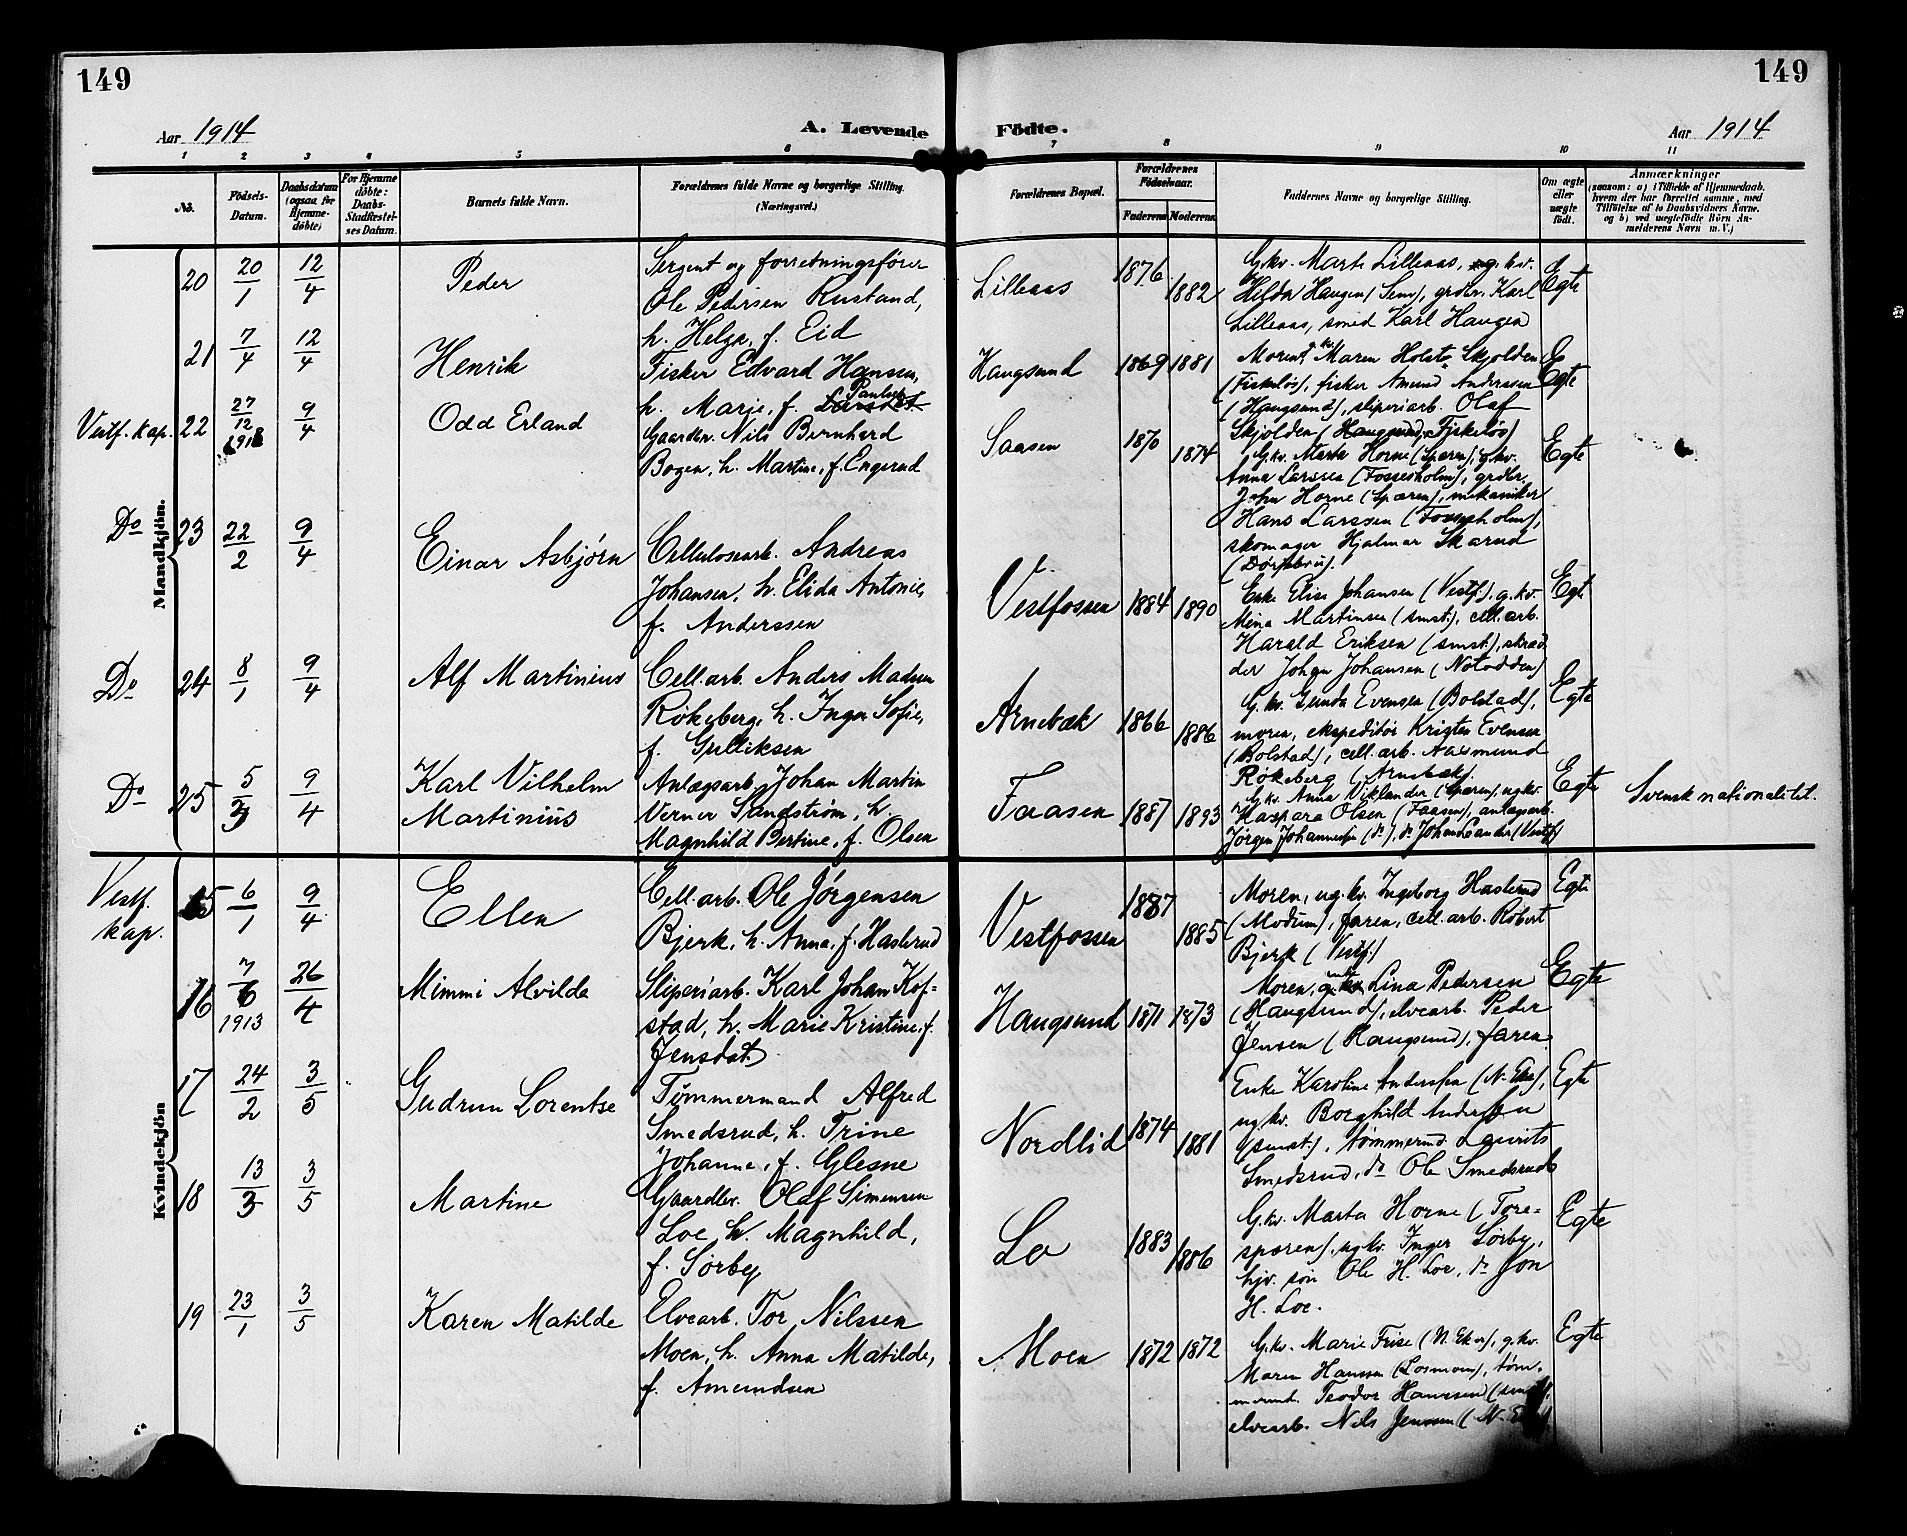 149
149
Aar 1914
A. Levende
Födte.
Aar 1914
1 2 3 4 5 6 7 8 9 10 11
No.
Födsels-Datum.
Daabsdatum (ogsaa for Hjemmedöbte)
For Hjemmedöbte: Daabs-Stadfæstelses Datum.
Barnets fulde Navn.
Forældrenes fulde Navne og borgerlige Stilling.
(Næringsvei.)
Forældrenes Bopæl.
Forældrenes Födselsaar.
Faderens Moderens
Faddernes Navne og borgerlige Stilling.
Om ægte eller uægte födt.
Anmærkninger
(saasom: a) i Tilfælde af Hjemmedaab, hvem der har forrettet samme, med Tilföielse af to Daabsvidners Navne, og b) ved uegtefödte Börn Anmelderens Navn m. V.)
Mandkjön.
20 20/1 12/4 Peder
Sergent og forretningsfører
Ole Pedersen Rustand,
h. Helga, f. Eid
Lilleaas 1876 1882
G.kv. Marte Lilleaas, ug. kv.
Hilda Haugen (Sem), grdbr. Karl
Lilleaas, smed Karl Haugen
Egte
21 7/4 12/4 Henrik
Fisker Edvard Hansen,
h. Marie, f. Paulsen
Haugsund 1869 1881
Moren, kv. Maren Holst Skjolden
(Fiskeløs), fisker Amund Anderssen
(Haugsund), sliperiarb. Olaf
Skjolden (Haugsund, Fiskeløs)
Egte
Vestf. kap. 22 27/12 1913 9/4 Odd Erland
Gaardbr. Nils Bernhard
Bogen, h. Martine, f. Engerud
Saasen 1870 1874
G.kv. Marta Horne (Sparen), g.kv.
Anna Larssen (Fossesholm), grdbr.
John Horne (Sparen), mekaniker
Hans Larssen (Fossesholm),
skomager Hjalmar Skarud
Egte
Do 23 22/2 9/4 Einar Asbjørn
Cellulosearb. Andreas
Johansen, h. Elida Antonie,
f. Anderssen
Vestfossen 1884 1890
Enke Elise Johansen (Vestf.), g.kv.
Mina Martinsen (smst.), cell. arb.
Harald Eriksen (smst.), skrad
der Johan Johansen (Notodden)
Egte
Do 24 8/1 9/4 Alf Martinius
Cell. arb. Anders Madsen
Røkeberg, h. Inga Sofie,
f. Gulliksen
Arnebæk 1866 1886
G.kv. Gunda Evensen (Bolstad),
moren, ekspeditør Kristen Evensen
(Bolstad), cell. arb. Aasmund
Røkeberg (Arnebæk).
Egte
Do 25 5/3 9/4 Karl Vilhelm
Martinius
Anlægsarb. Johan Martin
Verner Sandstrøm, h.
Magnhild Bertine, f. Olsen
Faasen 1887 1893
G.kv. Anna Viklander (Sparen), ug.kv.
Kaspara Olsen (Faasen), anlægsarb.
Jørgen Johannesen (do), do Johan Lander (Vestf.)
Egte
Svensk nationalitet.
Kvindekjön
Vestf. kap. 15 6/1 9/4 Ellen
Cell. arb. Ole Jørgensen
Bjerk, h. Anna, f. Haslerud
Vestfossen 1887 1885
Moren, ug. kv. Ingeborg Haslerud
(Modum), faren, cell. arb. Robert
Bjerk (Vestf.)
Egte
16 7/6 1913 26/4 Mimmi Alvilde
Sliperiarb. Karl Johan Kof=
stad, h. Marie Kristine, f.
Jensdat.
Haugsund 1871 1873
Moren, enke Lina Pedersen
(Haugsund), elvearb. Peder
Jensen (Haugsund), faren.
Egte
17 24/2 3/5 Gudrun Lorentse
Tømmermand Alfred
Smedsrud, h. Trine
Johanne, f. Glesne
Nordlid 1874 1881
Enke Karoline Anderssen (N. Eker),
ug. kv. Borghild Anderssen
(smst.), tømmermd. Laurits
Smedsrud, do Ole Smedsrud
Egte
18 13/3 3/5 Martine
Gaardbr. Olaf Simensen
Loe, h. Magnhild,
f. Sørby
Lo 1883 1886
G.kv. Marta Horne (Tore=
sparen), ug. kv. Inger Sørby,
hjv. søn Ole H. Loe, do Jon
H. Loe.
Egte
19 23/1 3/5 Karen Matilde
Elvearb. Tor Nilssen
Moen, h. Anna Matilde,
f. Amundsen
Moen 1872 1872
G.kv. Marie Frise (N. Eker), g.kv.
Maren Hanssen (Losmoen), tøm.
mermd. Teodor Hanssen (smst.),
elvearb. Nils Jenssen (N. Eker).
Egte